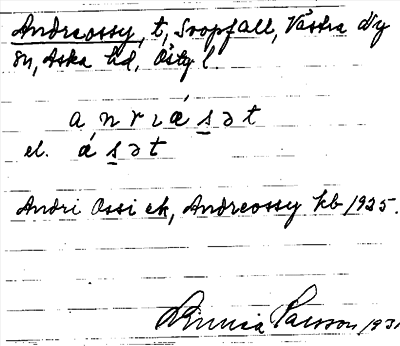 Andreossy, t, Svopfall, Västra Ny
sn, Aska hd, Östg l.
a n r ı ǽ s ə t
el. ǽ s ə t
Andri Ossi ek, Andreossy kb 1925.
Linnea Larsson 193